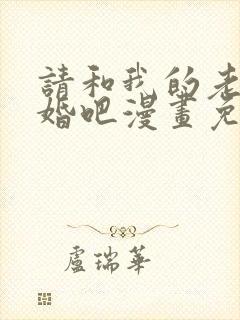 請和我的老
婚吧漫畫免
盧瑞華